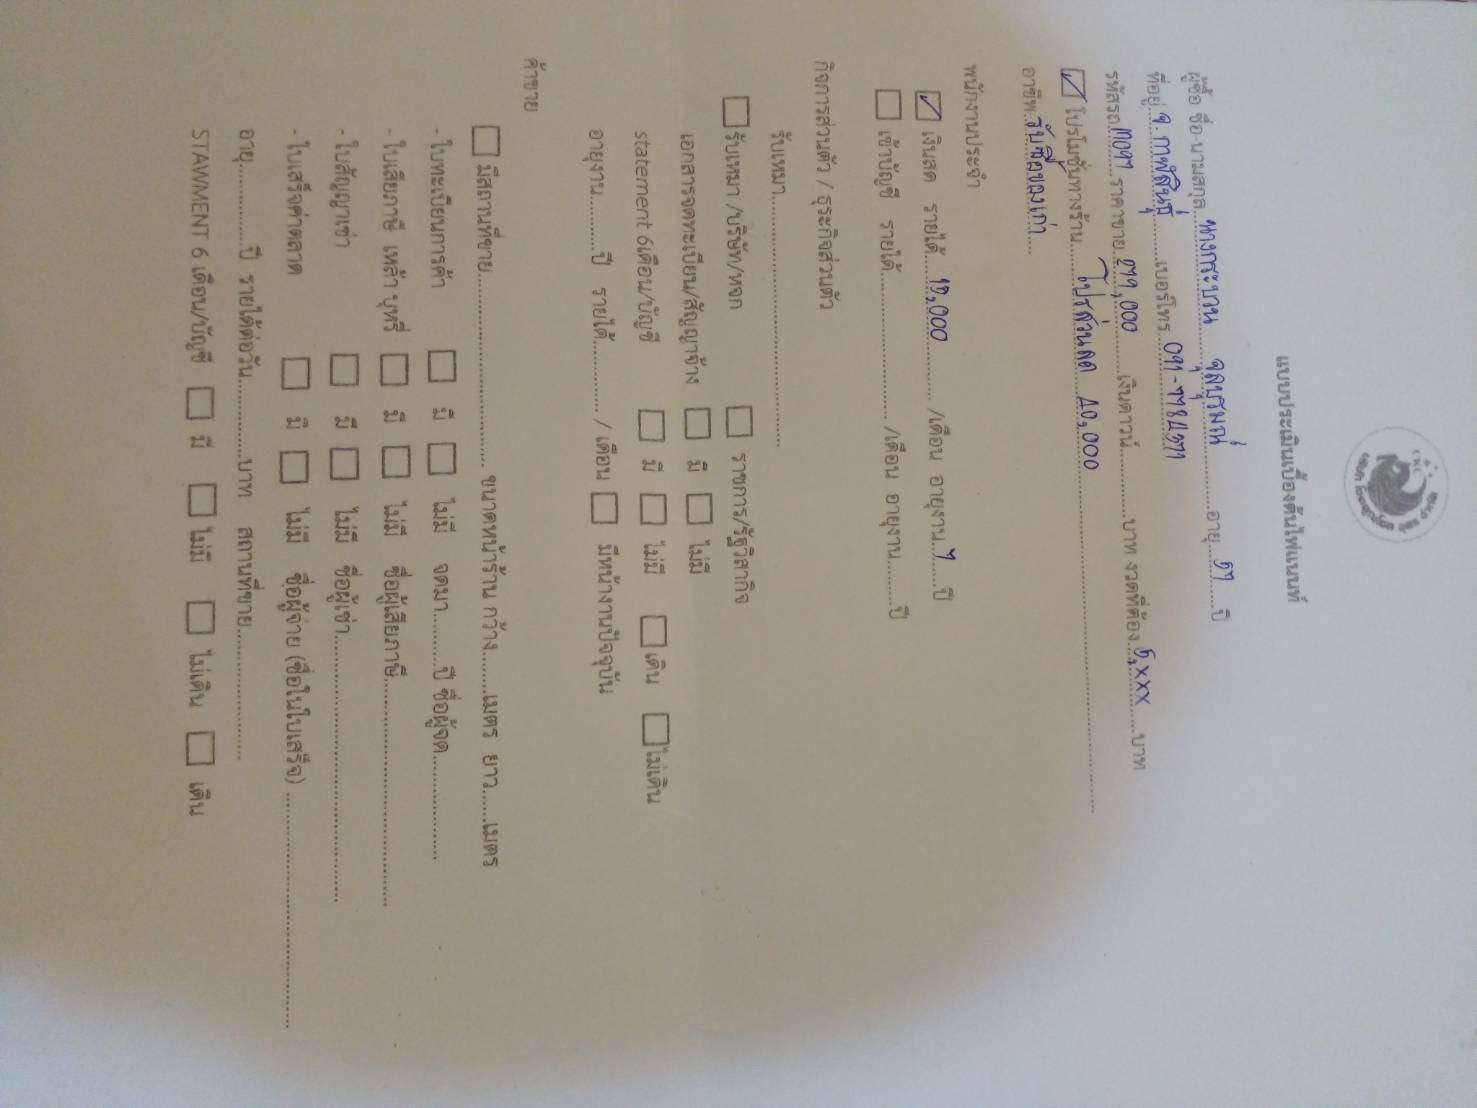 แบบประเมินเบื้องต้นไฟแนนท์
ผู้ซื้อ ชื่อ-นามสกุล อายุ ปี
ที่อยู่ จ.กาฬสินธุ์ เบอร์โทร
รหัสรถ ราคาขาย เงินดาวน์ บาท งวดที่ต้อง บาท
โปรโมชั่นทางร้าน โปรส่วนลด 40,000
อาชีพ รับซื้อของเก่า
พนักงานประจำ
เงินสด รายได้ 12,000 /เดือน อายุงาน ปี
เข้าบัญชี รายได้ /เดือน อายุงาน ปี
กิจการส่วนตัว / ธุระกิจส่วนตัว
รับเหมา
รับเหมา /บริษัท/หจก ราชการ/รัฐวิสากิจ
เอกสารจดทะเบียน/สัญญาจ้าง มี ไม่มี
statement 6เดือน/บัญชี มี ไม่มี เดิน ไม่เดิน
อายุงาน ปี รายได้ / เดือน มีหน้างานปัจจุบัน
ค้าขาย
มีสถานที่ขาย ขนาดหน้าร้าน กว้าง เมตร ยาว เมตร
- ใบทะเบียนการค้า มี ไม่มี จดมา ปี ชื่อผู้จด
- ใบเสียภาษี เหล้า บุหรี่ มี ไม่มี ชื่อผู้เสียภาษี
- ใบสัญญาเช่า มี ไม่มี ชื่อผู้เช่า
- ใบเสร็จค่าตลาด มี ไม่มี ชื่อผู้จ่าย (ชื่อในใบเสร็จ)
อายุ ปี รายได้ต่อวัน บาท สถานที่ขาย
STAWMENT 6 เดือน/บัญชี มี ไม่มี ไม่เดิน เดิน